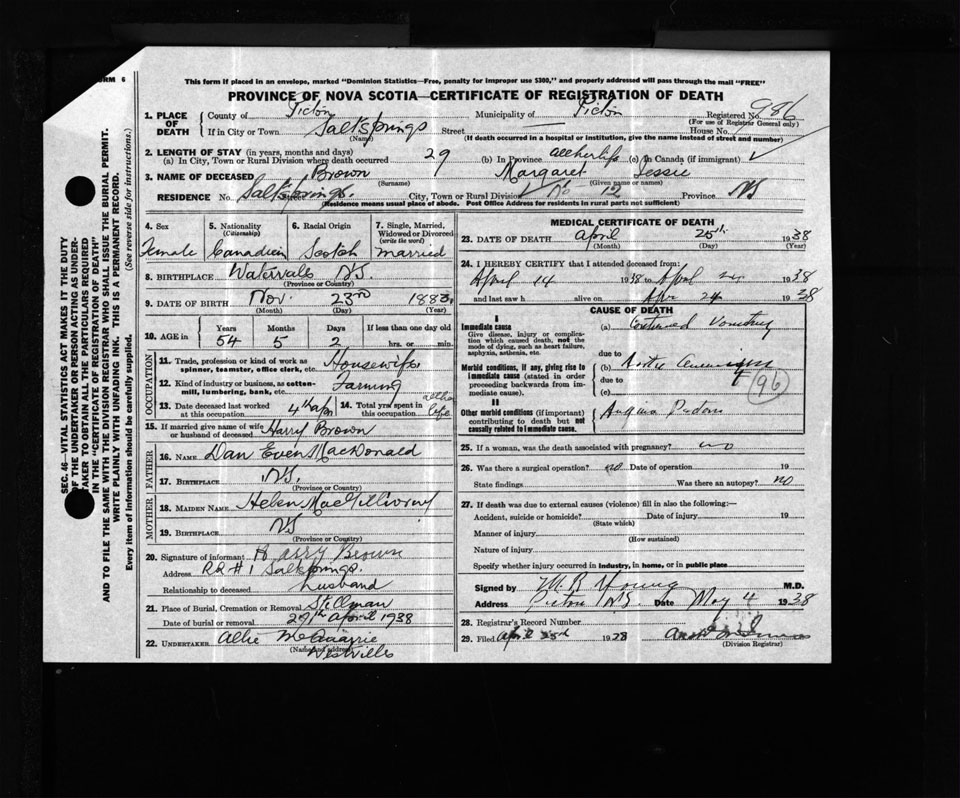 ORM 6
This form if placed in an envelope, marked "Dominion Statistics—Free, penalty for improper use $300," and properly addressed will pass through the mail "FREE"
PROVINCE OF NOVA SCOTIA—CERTIFICATE OF REGISTRATION OF DEATH
1. PLACE OF DEATH
County of Pictou Municipality of Pictou Registered No. 986
(For use of Registrar General only)
If in City or Town Salt Springs Street House No.
(Name) (If death occurred in a hospital or institution, give the name instead of street and number)
2. LENGTH OF STAY (in years, months and days)
(a) In City, Town or Rural Division where death occurred 29 (b) In Province all her life (c) In Canada (if immigrant)
3. NAME OF DECEASED Brown Margaret Jessie
(Surname) (Given name or names)
RESIDENCE No. Salt Springs City, Town or Rural Division No 12 Province NS
(Residence means usual place of abode. Post Office Address for residents in rural parts not sufficient)
4. Sex 5. Nationality (Citizenship) 6. Racial Origin 7. Single, Married, Widowed or Divorced (write the word)
Female Canadian Scotch Married
8. BIRTHPLACE Watervale NS.
(Province or Country)
9. DATE OF BIRTH Nov. 23rd 1883
(Month) (Day) (Year)
10. AGE in Years Months Days If less than one day old
54 5 2 hrs. or min.
OCCUPATION
11. Trade, profession or kind of work as spinner, teamster, office clerk, etc. Housewife
12. Kind of industry or business, as cotton-mill, lumbering, bank, etc. Farming
13. Date deceased last worked at this occupation 4th apr 14. Total yrs. spent in this occupation life
15. If married give name of wife or husband of deceased Harry Brown
FATHER
16. NAME Dan Even MacDonald
17. BIRTHPLACE NS.
(Province or Country)
MOTHER
18. MAIDEN NAME Helen MacGillivray
19. BIRTHPLACE NS
(Province or Country)
20. Signature of informant Harry Brown
Address RR#1 Salt Springs.
Relationship to deceased husband
21. Place of Burial, Cremation or Removal Stillman
Date of burial or removal 27th April 1938
22. UNDERTAKER Allie McQuarrie
(Name and address) Westville
MEDICAL CERTIFICATE OF DEATH
23. DATE OF DEATH April 25th 1938
(Month) (Day) (Year)
24. I HEREBY CERTIFY that I attended deceased from:
April 14 1938 to April 24 1938
and last saw h alive on Apr 24 1938
CAUSE OF DEATH
I
Immediate cause
Give disease, injury or complication which caused death, not the mode of dying, such as heart failure, asphyxia, asthenia, etc.
(a) Continued Vomiting
due to
Morbid conditions, if any, giving rise to immediate cause (stated in order proceeding backwards from immediate cause).
(b) Aortic Aneurism
due to
(c)
96
II
Other morbid conditions (if important) contributing to death but not causally related to immediate cause.
Angina Pectoris
25. If a woman, was the death associated with pregnancy? no
26. Was there a surgical operation? no Date of operation 19
State findings Was there an autopsy? no
27. If death was due to external causes (violence) fill in also the following:—
Accident, suicide or homicide? Date of injury 19
(State which)
Manner of injury
(How sustained)
Nature of injury
Specify whether injury occurred in industry, in home, or in public place
Signed by M.R. Young M.D.
Address Pictou NS. Date May 4 1938
28. Registrar's Record Number
29. Filed April 1928
(Division Registrar)
SEC. 46—VITAL STATISTICS ACT MAKES IT THE DUTY
OF THE UNDERTAKER OR PERSON ACTING AS UNDER-
TAKER TO OBTAIN ALL THE PARTICULARS REQUIRED
IN THE "CERTIFICATE OF REGISTRATION OF DEATH"
AND TO FILE THE SAME WITH THE DIVISION REGISTRAR WHO SHALL ISSUE THE BURIAL PERMIT.
WRITE PLAINLY WITH UNFADING INK. THIS IS A PERMANENT RECORD.
Every item of information should be carefully supplied. (See reverse side for instructions.)